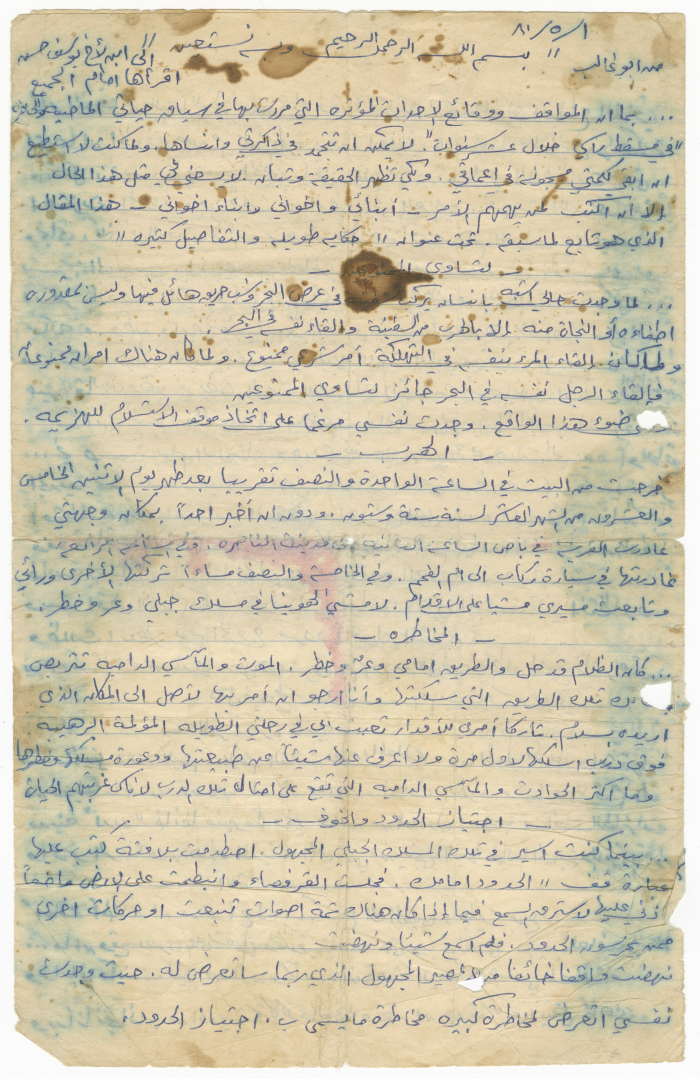 ٨٠/٥/١
من ابو غالب  " بسم الله الرحمن الرحيم وبه نستعين  الى ابن الأخ يوسف حسن
اقرأها امام الجميع
... بما ان المواقف ووقائع الاحداث المؤثره التي مررت بها في سياق حياتي الماضيه
"في مسقط رأسي خلال عشر سنوات". لا يمكن ان تتجمد في ذاكرتي وانساها. ولما كنت لا استطيع
ان ابقي كلمتي مسجونة في اعماقي. ولكي تظهر الحقيقة وتبان. لا يسعني في مثل هذا الحال
الا أن اكتب لمن يهمهم الأمر - أبنائي واخواني وابناء اخواني - هذا المقال
الذي هو تتابع لما سبقه. تحت عنوان " حكايه طويله والتفاصيل كثيره "
- تساوي الممنوعين -
... لما وجدت حالي اشبه بانسان يركب سفينة في عرض البحر وشب حريق هائل فيها وليس بمقدوره
اطفاءه أو النجاة منه. الا بالهرب من السفينة والقاء نفسه في البحر.
ولما كان. القاء المرء بنفسه في التهلكة أمر شرعي ممنوع. ولما كان هناك امران ممنوعان
فإلقاء الرجل نفسه في البحر جائز لتساوي الممنوعين
على ضوء هذا الواقع. وجدت نفسي مرغما على اتخاذ موقف الاستسلام للهزيمه.
- الهرب -
خرجت من البيت في الساعة الواحدة والنصف تقريبا بعد ظهر يوم الاثنين الخامس
والعشرون من الشهر العاشر لسنة ستة وستون. ودون ان أخبر احداً بمكان وجهتي
غادرت القرية في باص الساعة الثانية الى مدينة الناصره. وفي الساعة الرابعة
غادرتها في سيارة ركاب الى ام الفحم. وفي الخامسة والنصف مساءاً تركتها الأخرى ورائي
وتابعت مسيري مشيا على الاقدام. لامشي الهوينا في مسلك جبلي وعر وخطر.
- المخاطره -
... كان الظلام قد حل والطريق امامي وعرٌ وخطر. الموت والمآسي الداميه تتربص
تلك الطريق التي سلكتها وأنا ارجو ان أمر بها لأصل الى المكان الذي
اريده بسلام. تاركا أمري للأقدار تعبث بي في رحلتي الطويله المؤلمة الرهيبه
فوق درب اسلكها لاول مرة ولا اعرف عنها شيئاً عن طبيعتها ووعورة مسلكها وخطرها
وما اكثر الحوادث والمآسي الداميه التي تقع على امثال تلك الدرب لأناس غرتهم الحياة
- اجتياز الحدود والخوف -
... بينما كنت اسير في ذلك المسلك الجبلي المجهول. اصطدمت بلافتة كتب عليها
عبارة قف " الحدود امامك. فجلست القرفصاء وانبطحت على الارض واضعاً
أذني عليها لاسترق السمع فيما إذا كان هناك ثمة اصوات تنبعث او حركات اخرى
ممن يحرسون الحدود. فلم اسمع شيئا ونهضت
نهضت واقفا خائفا من المصير المجهول الذي ربما ساتعرض له. حيث وجدت
نفسي اتعرض لمخاطرة كبيره مخاطرة ما يسمى ب. اجتياز الحدود.